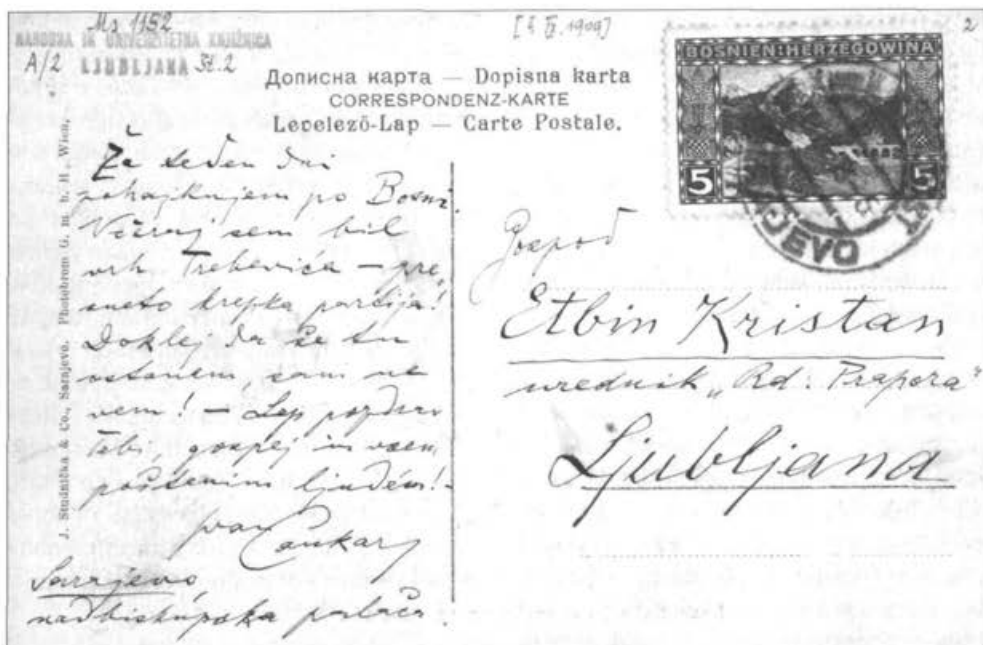 Ms 1152
NARODNA IN UNIVERZITETNA KNJIŽNICA
A/2 LJUBLJANA Št. 2
1909]
2
Дописна карта — Dopisna karta
CORRESPONDENZ-KARTE
Lepelező-Lap — Carte Postale.
BOSNIEN-HERZEGOWINA
5 5
JEVO
J. Studnička & Co., Sarajevo. Photobrom G. m. b. H., Wien.
Že teden dni
pohajkujem po Bosni.
Včeraj sem bil
vrh Trebevića — pre-
neto krepka partija!
Doklej da še tu
ostanem, sam ne
vem! — Lep pozdrav
Tebi, gospej in vsem
poštenim ljudém!
Ivan Cankar
Sarajevo
nadbiskupska palača.
Gospod
Etbin Kristan
urednik „Rd. Prapora“
Ljubljana